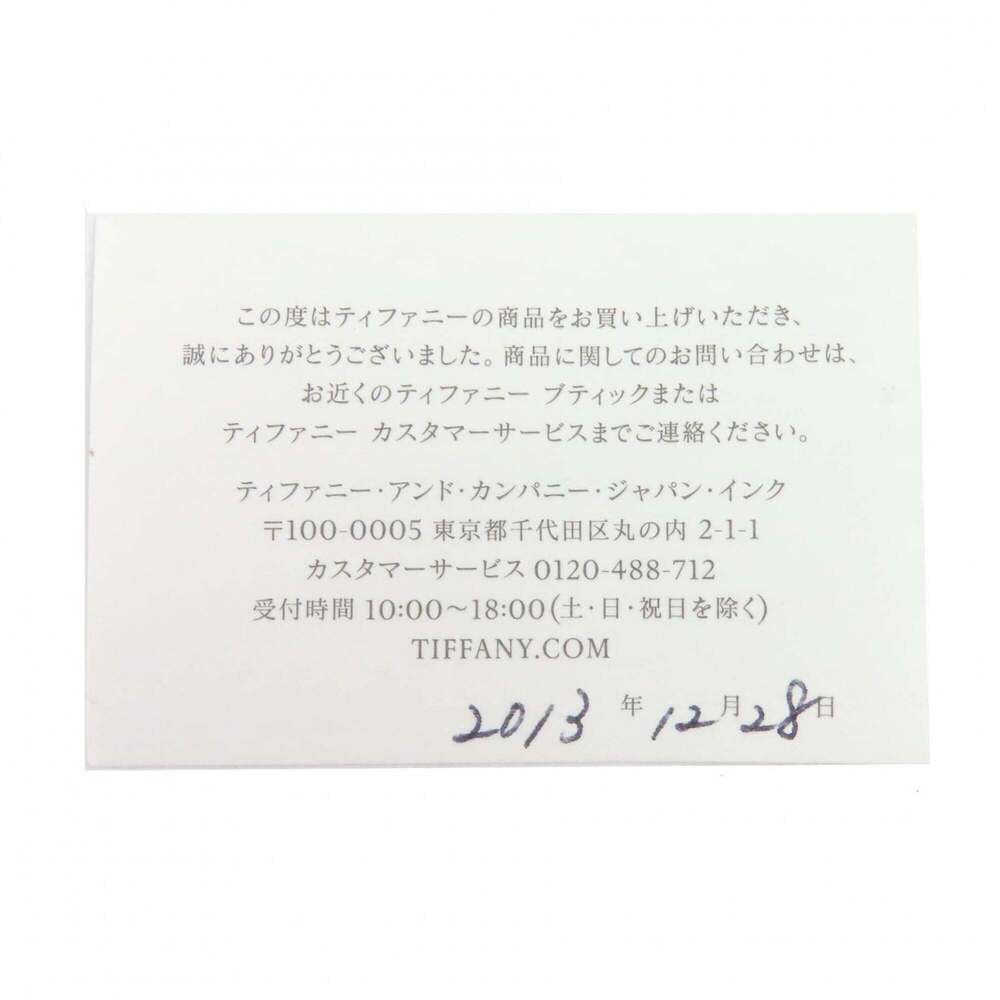 この度はティファニーの商品をお買い上げいただき、
誠にありがとうございました。商品に関してのお問い合わせは、
お近くのティファニー ブティックまたは
ティファニー カスタマーサービスまでご連絡ください。
ティファニー・アンド・カンパニー・ジャパン・インク
〒100-0005 東京都千代田区丸の内 2-1-1
カスタマーサービス 0120-488-712
受付時間 10:00〜18:00(土・日・祝日を除く)
TIFFANY.COM
2013 年 12 月 28 日